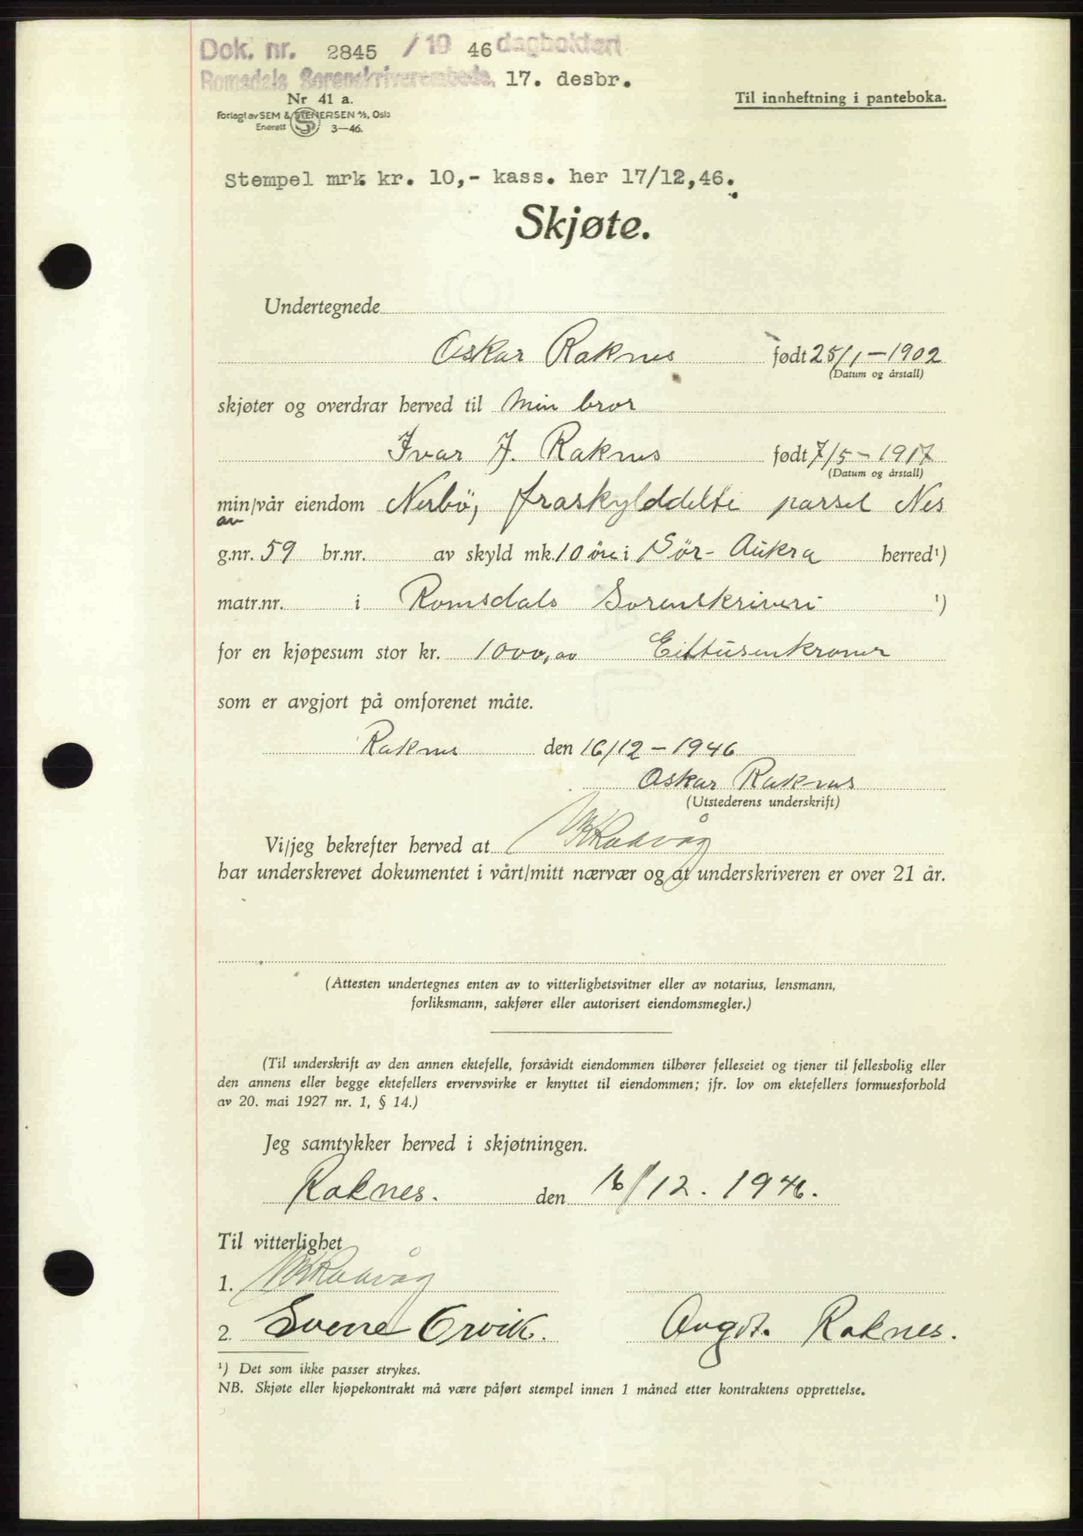 Dok. nr. 2845 / 19 46 dagbokført
Romsdals Sorenskriverembede, 17. desbr.
Nr 41 a.
Forlagt av SEM & STENERSEN A/S, Oslo
Enerett 3—46.
Til innheftning i panteboka.
Stempel mrk kr. 10,- kass. her 17/12,46.
Skjøte.
Undertegnede
Oskar Raknes født 25/1 - 1902
(Datum og årstall)
skjøter og overdrar herved til min bror
Ivar J. Raknes født 7/5 - 1917
(Datum og årstall)
min/vår eiendom Nerbö, fraskylddelte parsel Nes
av
g.nr. 59 br.nr. av skyld mk. 10 öre i Sör-Aukra herred¹)
matr.nr. i Romsdals Sorenskriveri ¹)
for en kjøpesum stor kr. 1000,00 Eittusenkroner
som er avgjort på omforenet måte.
Raknes den 16/12 - 1946
Oskar Raknes
(Utstederens underskrift)
Vi/jeg bekrefter herved at
har underskrevet dokumentet i vårt/mitt nærvær og at underskriveren er over 21 år.
(Attesten undertegnes enten av to vitterlighetsvitner eller av notarius, lensmann,
forliksmann, sakfører eller autorisert eiendomsmegler.)
(Til underskrift av den annen ektefelle, forsåvidt eiendommen tilhører felleseiet og tjener til fellesbolig eller
den annens eller begge ektefellers ervervsvirke er knyttet til eiendommen; jfr. lov om ektefellers formuesforhold
av 20. mai 1927 nr. 1, § 14.)
Jeg samtykker herved i skjøtningen.
Raknes. den 16/12. 1946.
Til vitterlighet
1.
2. Sverre Orvik. Raknes.
¹) Det som ikke passer strykes.
NB. Skjøte eller kjøpekontrakt må være påført stempel innen 1 måned etter kontraktens opprettelse.